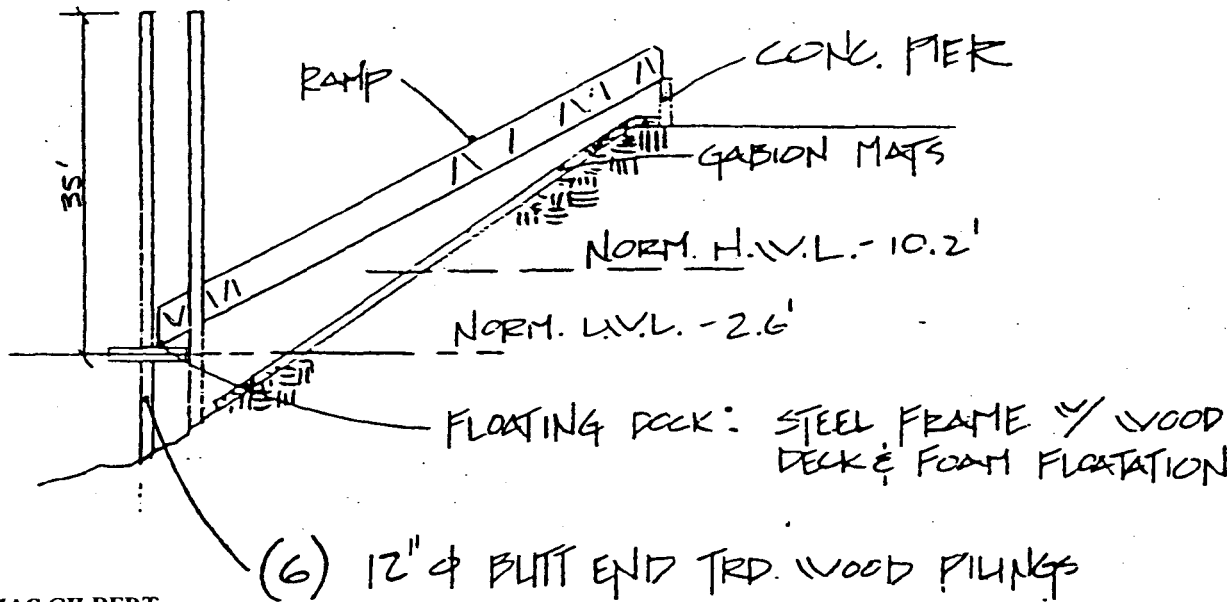 RAMP
CONC. PIER
35'
GABION MATS
NORM. H.W.L. - 10.2'
NORM. L.W.L. - 2.6'
FLOATING DOCK: STEEL FRAME W/ WOOD
DECK & FOAM FLOATATION
(6) 12" Φ BUTT END TRD. WOOD PILINGS